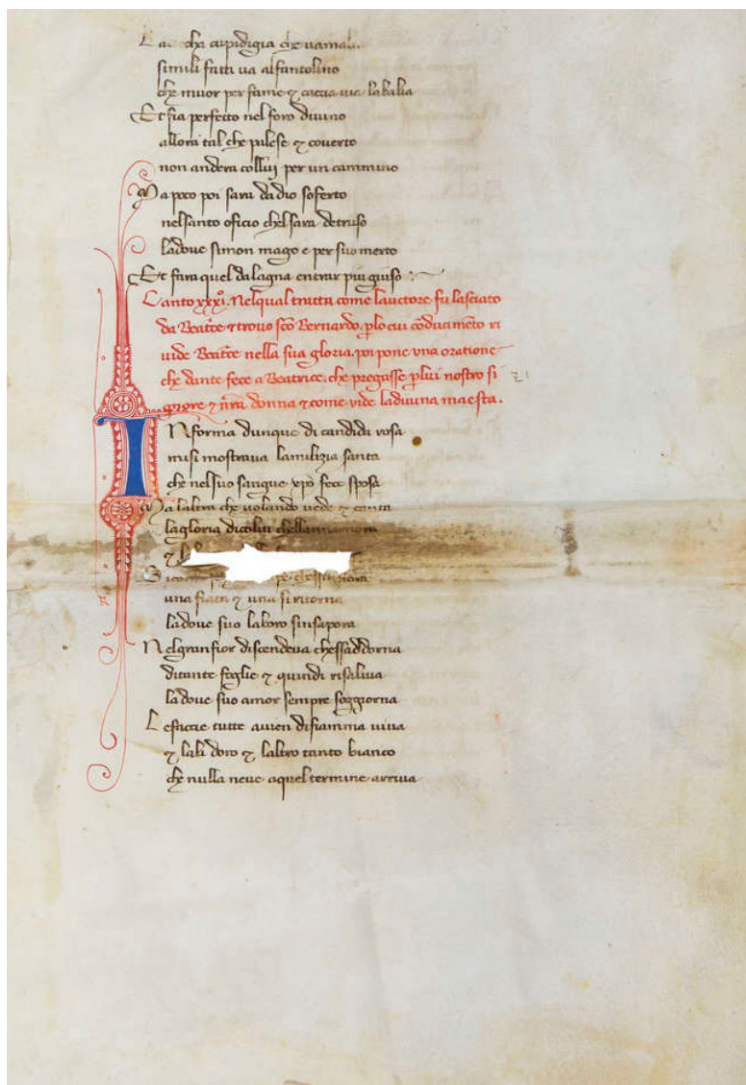 La cha cupidigia che vamal
simili fatti va alfantolino
che muor per fame & caccia via labalia
Et fia perfecto nel foro divino
allora tal che palese & coverto
non andera collui per un cammino
Ma poco poi sara dadio soferto
nelsanto oficio chelsara detruso
ladove simon mago e per suo merto
Et fara quel dalagna entrar piu giuso
Canto xxxi. Nelqual tratta come lauctore fu lasciato
da Beatce & trovo sco Bernardo. plo cui coducimeto ri
vide Beatce nella sua gloria. poi pone una oratione
che dante fece a Beatrice, che pregasse plui nostro si
gnore & nra donna & come vide ladivina maesta.
INforma dunque di candida rosa
misi mostrava lamilizia santa
che nelsuo sangue xpo fece sposa
Ma laltra che volando vede & canta
lagloria dicolui chellannamora
&
Sicome
una fiata & una siritorna
ladove suo laboro sinsapora
Nelgranfior discendeva chessaddorna
ditante foglie & quindi risaliva
ladove suo amor sempre soggiorna
Lefaccie tutte avien difiamma viva
& lali doro & laltro tanto bianco
che nulla neve aquel termine arriva